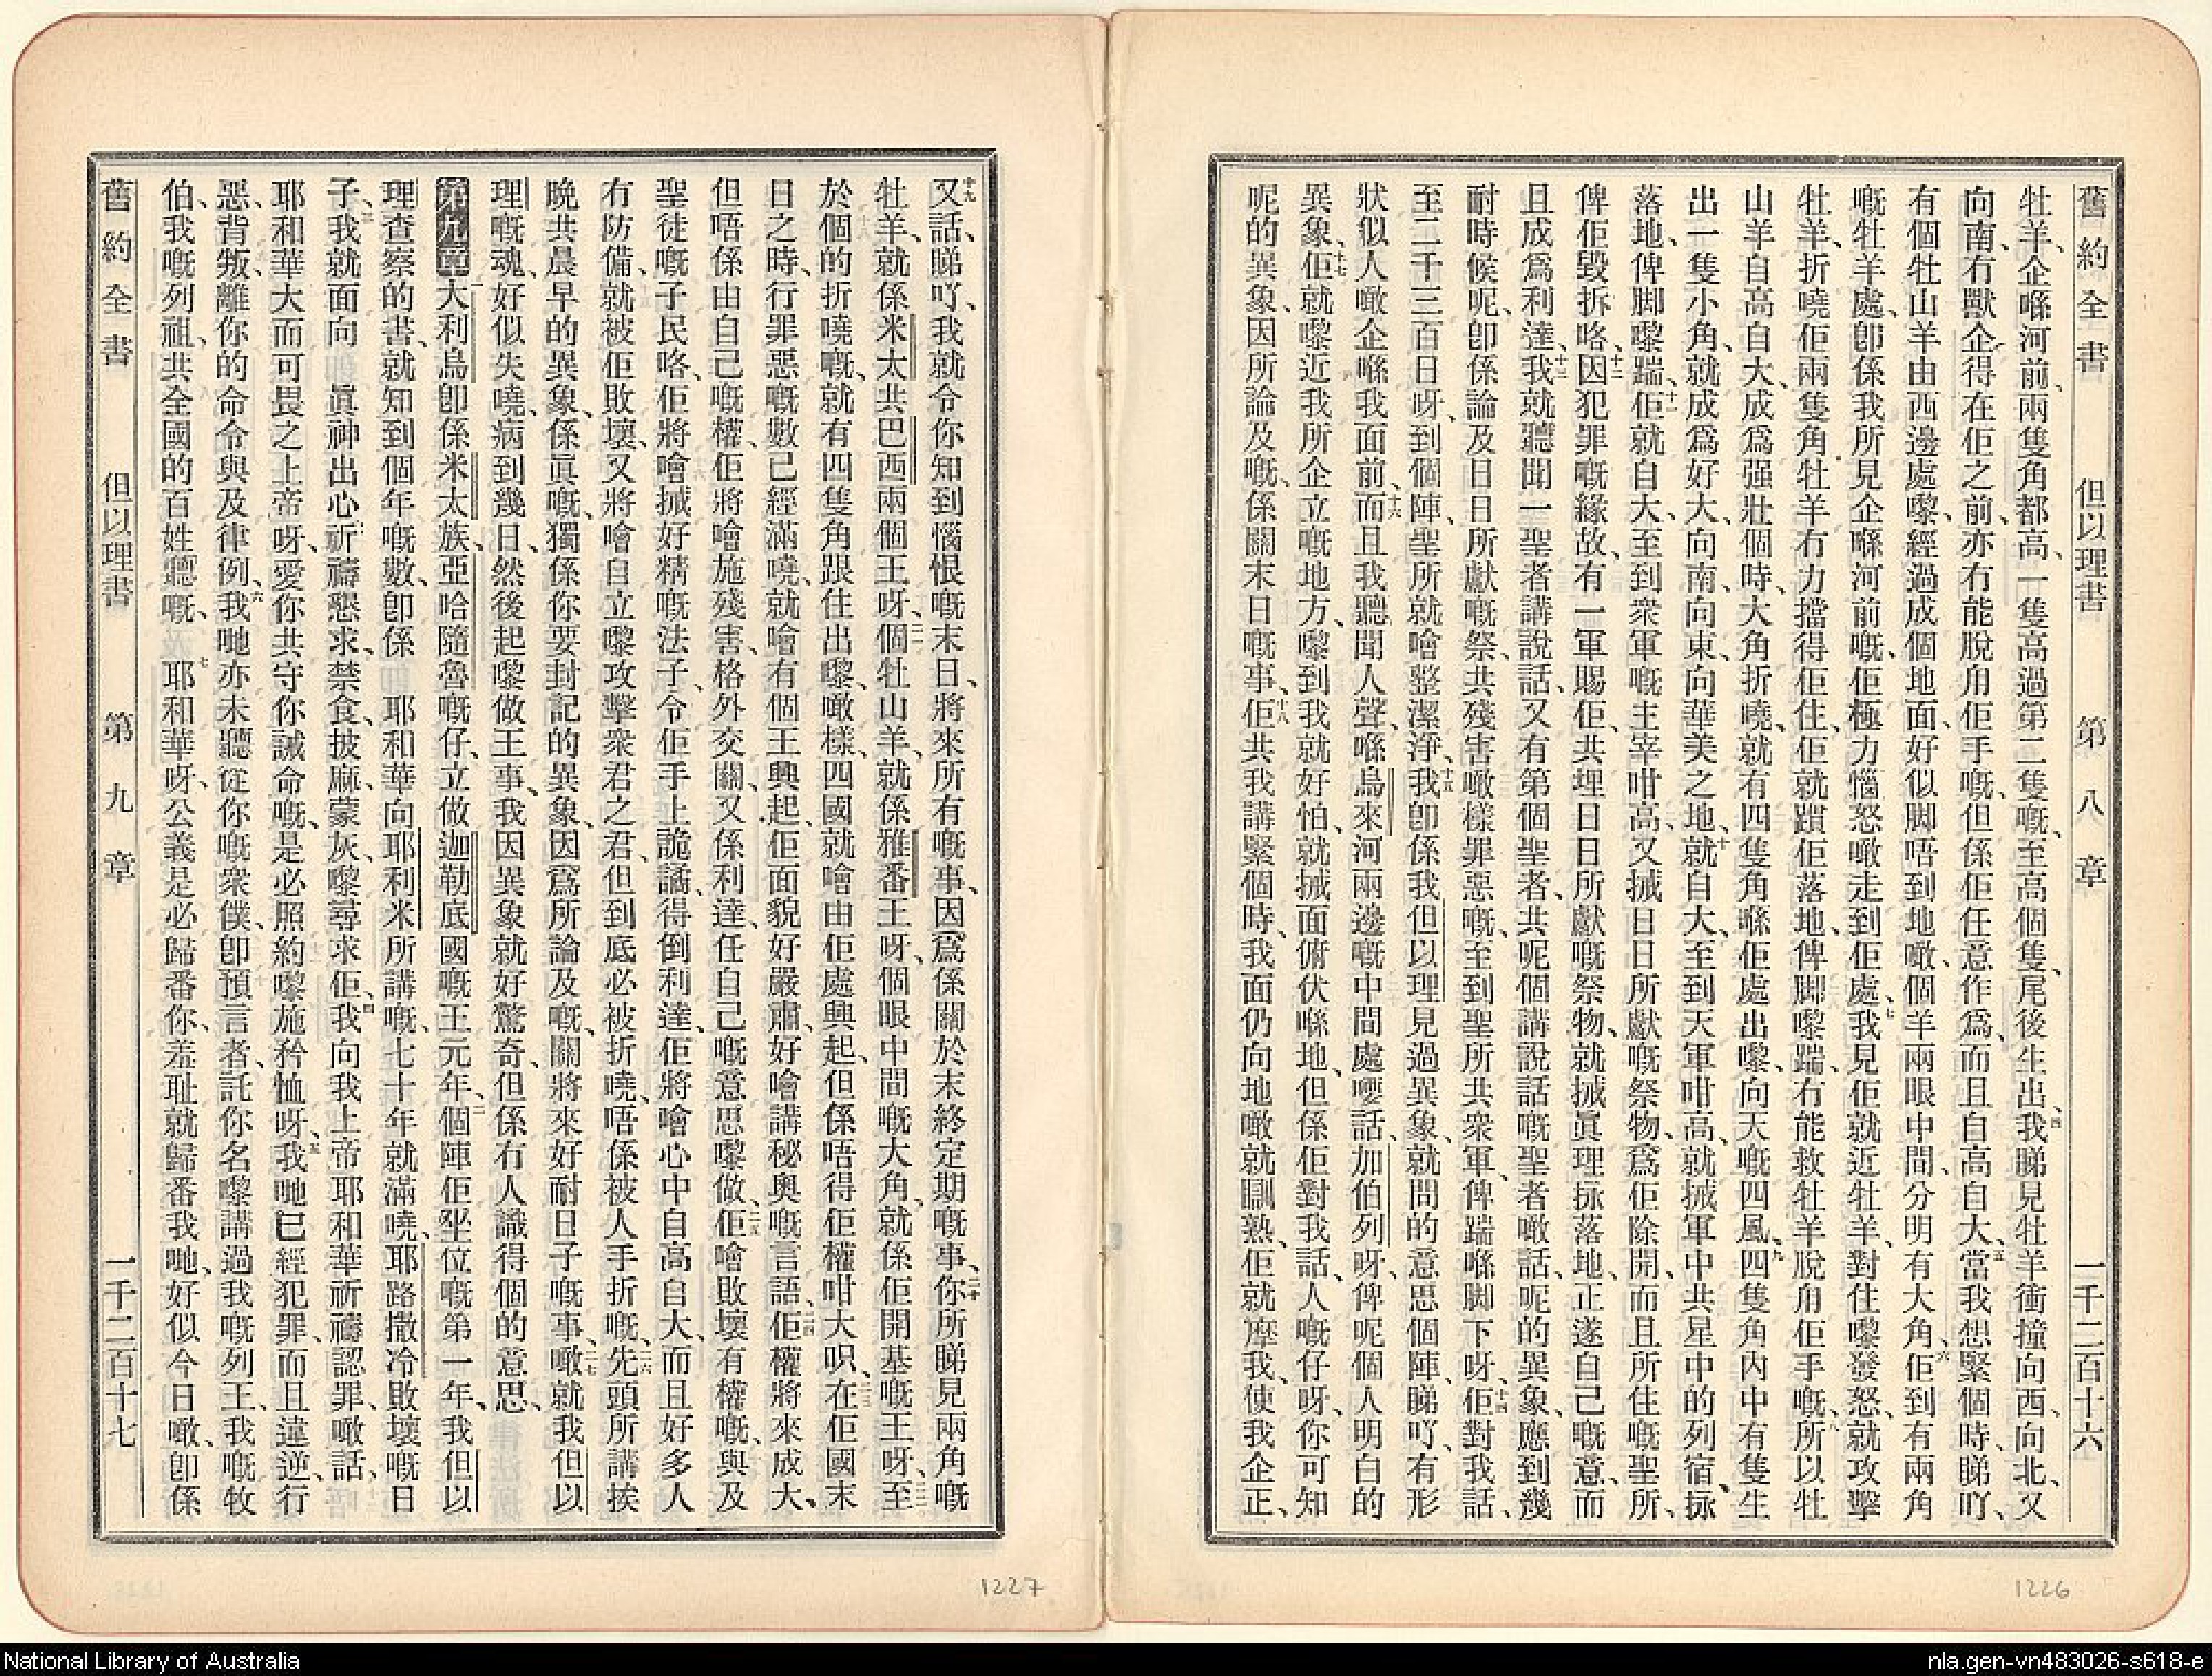 舊約全書 但以理書 第八章 一千二百十六
牡羊、企喺河前、兩隻角都高、一隻高過第二隻嘅、至高個隻、尾後生出、四我睇見牡羊衝撞向西、向北、又
向南、冇獸企得在佢之前、亦冇能脫甩佢手嘅、但係佢任意作為、而且自高自大、五當我想緊個時、睇吖、
有個牡山羊由西邊處嚟、經過成個地面、好似脚唔到地噉、個羊兩眼中間、分明有大角、六佢到有兩角
嘅牡羊處、卽係我所見企喺河前嘅、佢極力惱怒噉走到佢處、七我見佢就近牡羊、對住嚟發怒、就攻擊
牡羊、折嘵佢兩隻角、牡羊冇力擋得佢住、佢就蹟佢落地、俾脚嚟踹、冇能救牡羊脫甪佢手嘅、八所以牡
山羊自高自大、成為强壯個時、大角折嘵、就有四隻角喺佢處出嚟、向天嘅四風、九四隻角內中有隻生
出一隻小角、就成為好大、向南、向東、向華美之地、十就自大、至到天軍咁高、就搣軍中共星中的列宿、揼
落地、俾脚嚟踹、十一佢就自大、至到衆軍嘅主宰咁高、又搣日日所獻嘅祭物、爲佢除開、而且所住嘅聖所、
俾佢毀拆咯、十二因犯罪嘅緣故、有一軍賜佢、共埋日日所獻嘅祭物、就搣眞理揼落地、正遂自己嘅意、而
且成爲利達、十三我就聽聞一聖者講說話、又有第個聖者、共呢個講說話嘅聖者噉話、呢的異象、應到幾
耐時候呢、卽係論及日日所獻嘅祭、共殘害噉樣罪惡嘅、至到聖所共衆軍、俾踹喺脚下呀、十四佢對我話、
至二千三百日呀、到個陣、聖所就噲整潔淨、十五我卽係我但以理見過異象、就問的意思個陣、睇吖、有形
狀似人噉企喺我面前、十六而且我聽聞人聲、喺烏來河兩邊嘅中間處嘤話、加伯列呀、俾呢個人明白的
異象、十七佢就嚟近我所企立嘅地方、嚟到我就好怕、就搣面俯伏喺地、但係佢對我話、人嘅仔呀、你可知
呢的異象、因所論及嘅、係關末日嘅事、十八佢共我講緊個時、我面仍向地噉就瞓熟、佢就摩我、使我企正、
1226
十九又話、睇吖、我就令你知到惱恨嘅末日、將來所有嘅事、因爲係關於末終定期嘅事、二十你所睇見兩角嘅
牡羊、就係米太共巴西兩個王呀、二一個牡山羊、就係雅番王呀、個眼中間嘅大角、就係佢開基嘅王呀、二二至
於個的折嘵嘅、就有四隻角跟住出嚟、噉樣、四國就噲由佢處興起、但係唔得佢權咁大呮、二三在佢國末
日之時、行罪惡嘅數已經滿嘵、就噲有個王興起、佢面貌好嚴肅、好噲講秘奧嘅言語、二四佢權將來成大、
但唔係由自己嘅權、佢將噲施殘害、格外交關、又係利達、任自己嘅意思嚟做、二五佢噲敗壞有權嘅、與及
聖徒嘅子民咯、佢將噲搣好精嘅法子、令佢手上詭譎、得倒利達、佢將噲心中自高自大、而且好多人
冇防備、就被佢敗壞、又將噲自立嚟攻擊衆君之君、但到底必被折嘵、唔係被人手折嘅、二六先頭所講挨
晚共晨早的異象、係眞嘅、獨係你要封記的異象、因爲所論及嘅、關將來好耐日子嘅事、二七噉就我但以
理嘅魂、好似失嘵、病到幾日、然後起嚟做王事、我因異象就好驚奇、但係冇人識得個的意思、
第九章 大利烏卽係米太族、亞哈隨魯嘅仔、立做迦勒底國嘅王元年、二個陣佢坐位嘅第一年、我但以
理查察的書、就知到個年嘅數、卽係 耶和華向耶利米所講嘅、七十年就滿嘵、耶路撒冷敗壞嘅日
子、三我就面向 眞神出心祈禱懇求、禁食、披麻、蒙灰、嚟尋求佢、四我向我上帝耶和華祈禱認罪、噉話、
耶和華大而可畏之上帝呀、愛你共守你誡命嘅、是必照約嚟施矜恤呀、五我哋已經犯罪、而且違逆、行
惡、背叛、離你的命令與及律例、六我哋亦未聽從你嘅衆僕、卽預言者、託你名嚟講過我嘅列王、我嘅牧
伯、我嘅列祖、共全國的百姓聽嘅、七耶和華呀、公義是必歸番你、羞耻就歸番我哋、好似今日噉、卽係
舊約全書 但以理書 第九章 一千二百十七
1227
National Library of Australia
nla.gen-vn483026-s618-e